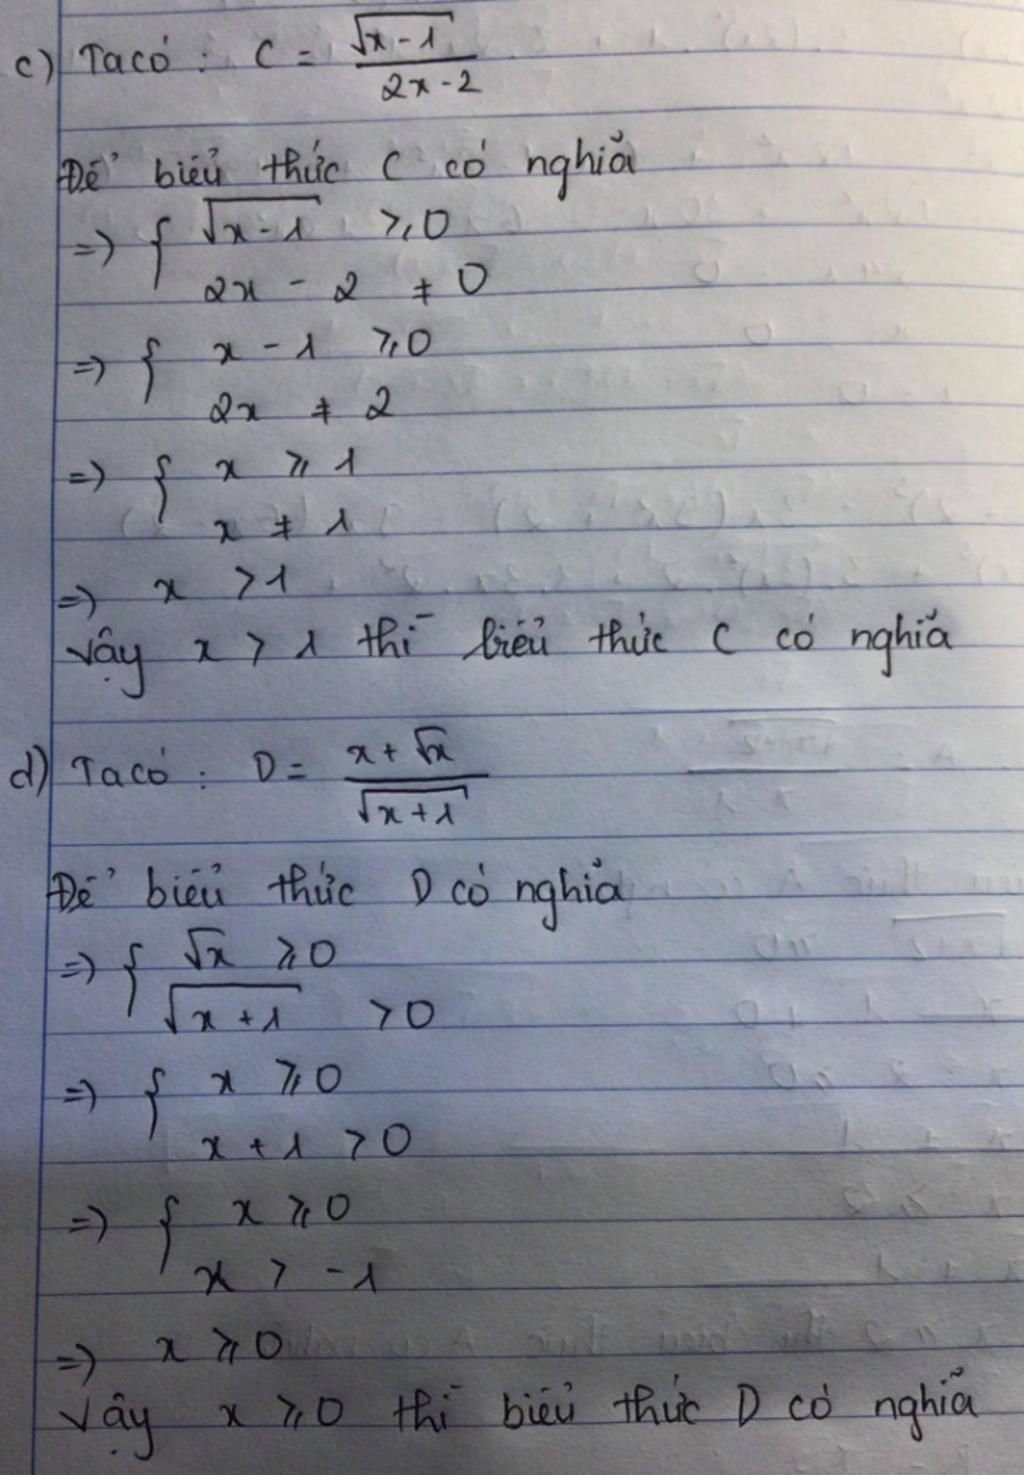 c) Ta có : C = \frac{\sqrt{x-1}}{2x-2}
Để biểu thức C có nghĩa
=> { \sqrt{x-1} ≥ 0
2x - 2 ≠ 0
=> { x - 1 ≥ 0
2x ≠ 2
=> { x ≥ 1
x ≠ 1
=> x > 1
Vậy x > 1 thì biểu thức C có nghĩa
d) Ta có : D = \frac{x+\sqrt{x}}{\sqrt{x+1}}
Để biểu thức D có nghĩa
=> { \sqrt{x} ≥ 0
\sqrt{x+1} > 0
=> { x ≥ 0
x + 1 > 0
=> { x ≥ 0
x > -1
=> x ≥ 0
Vậy x ≥ 0 thì biểu thức D có nghĩa